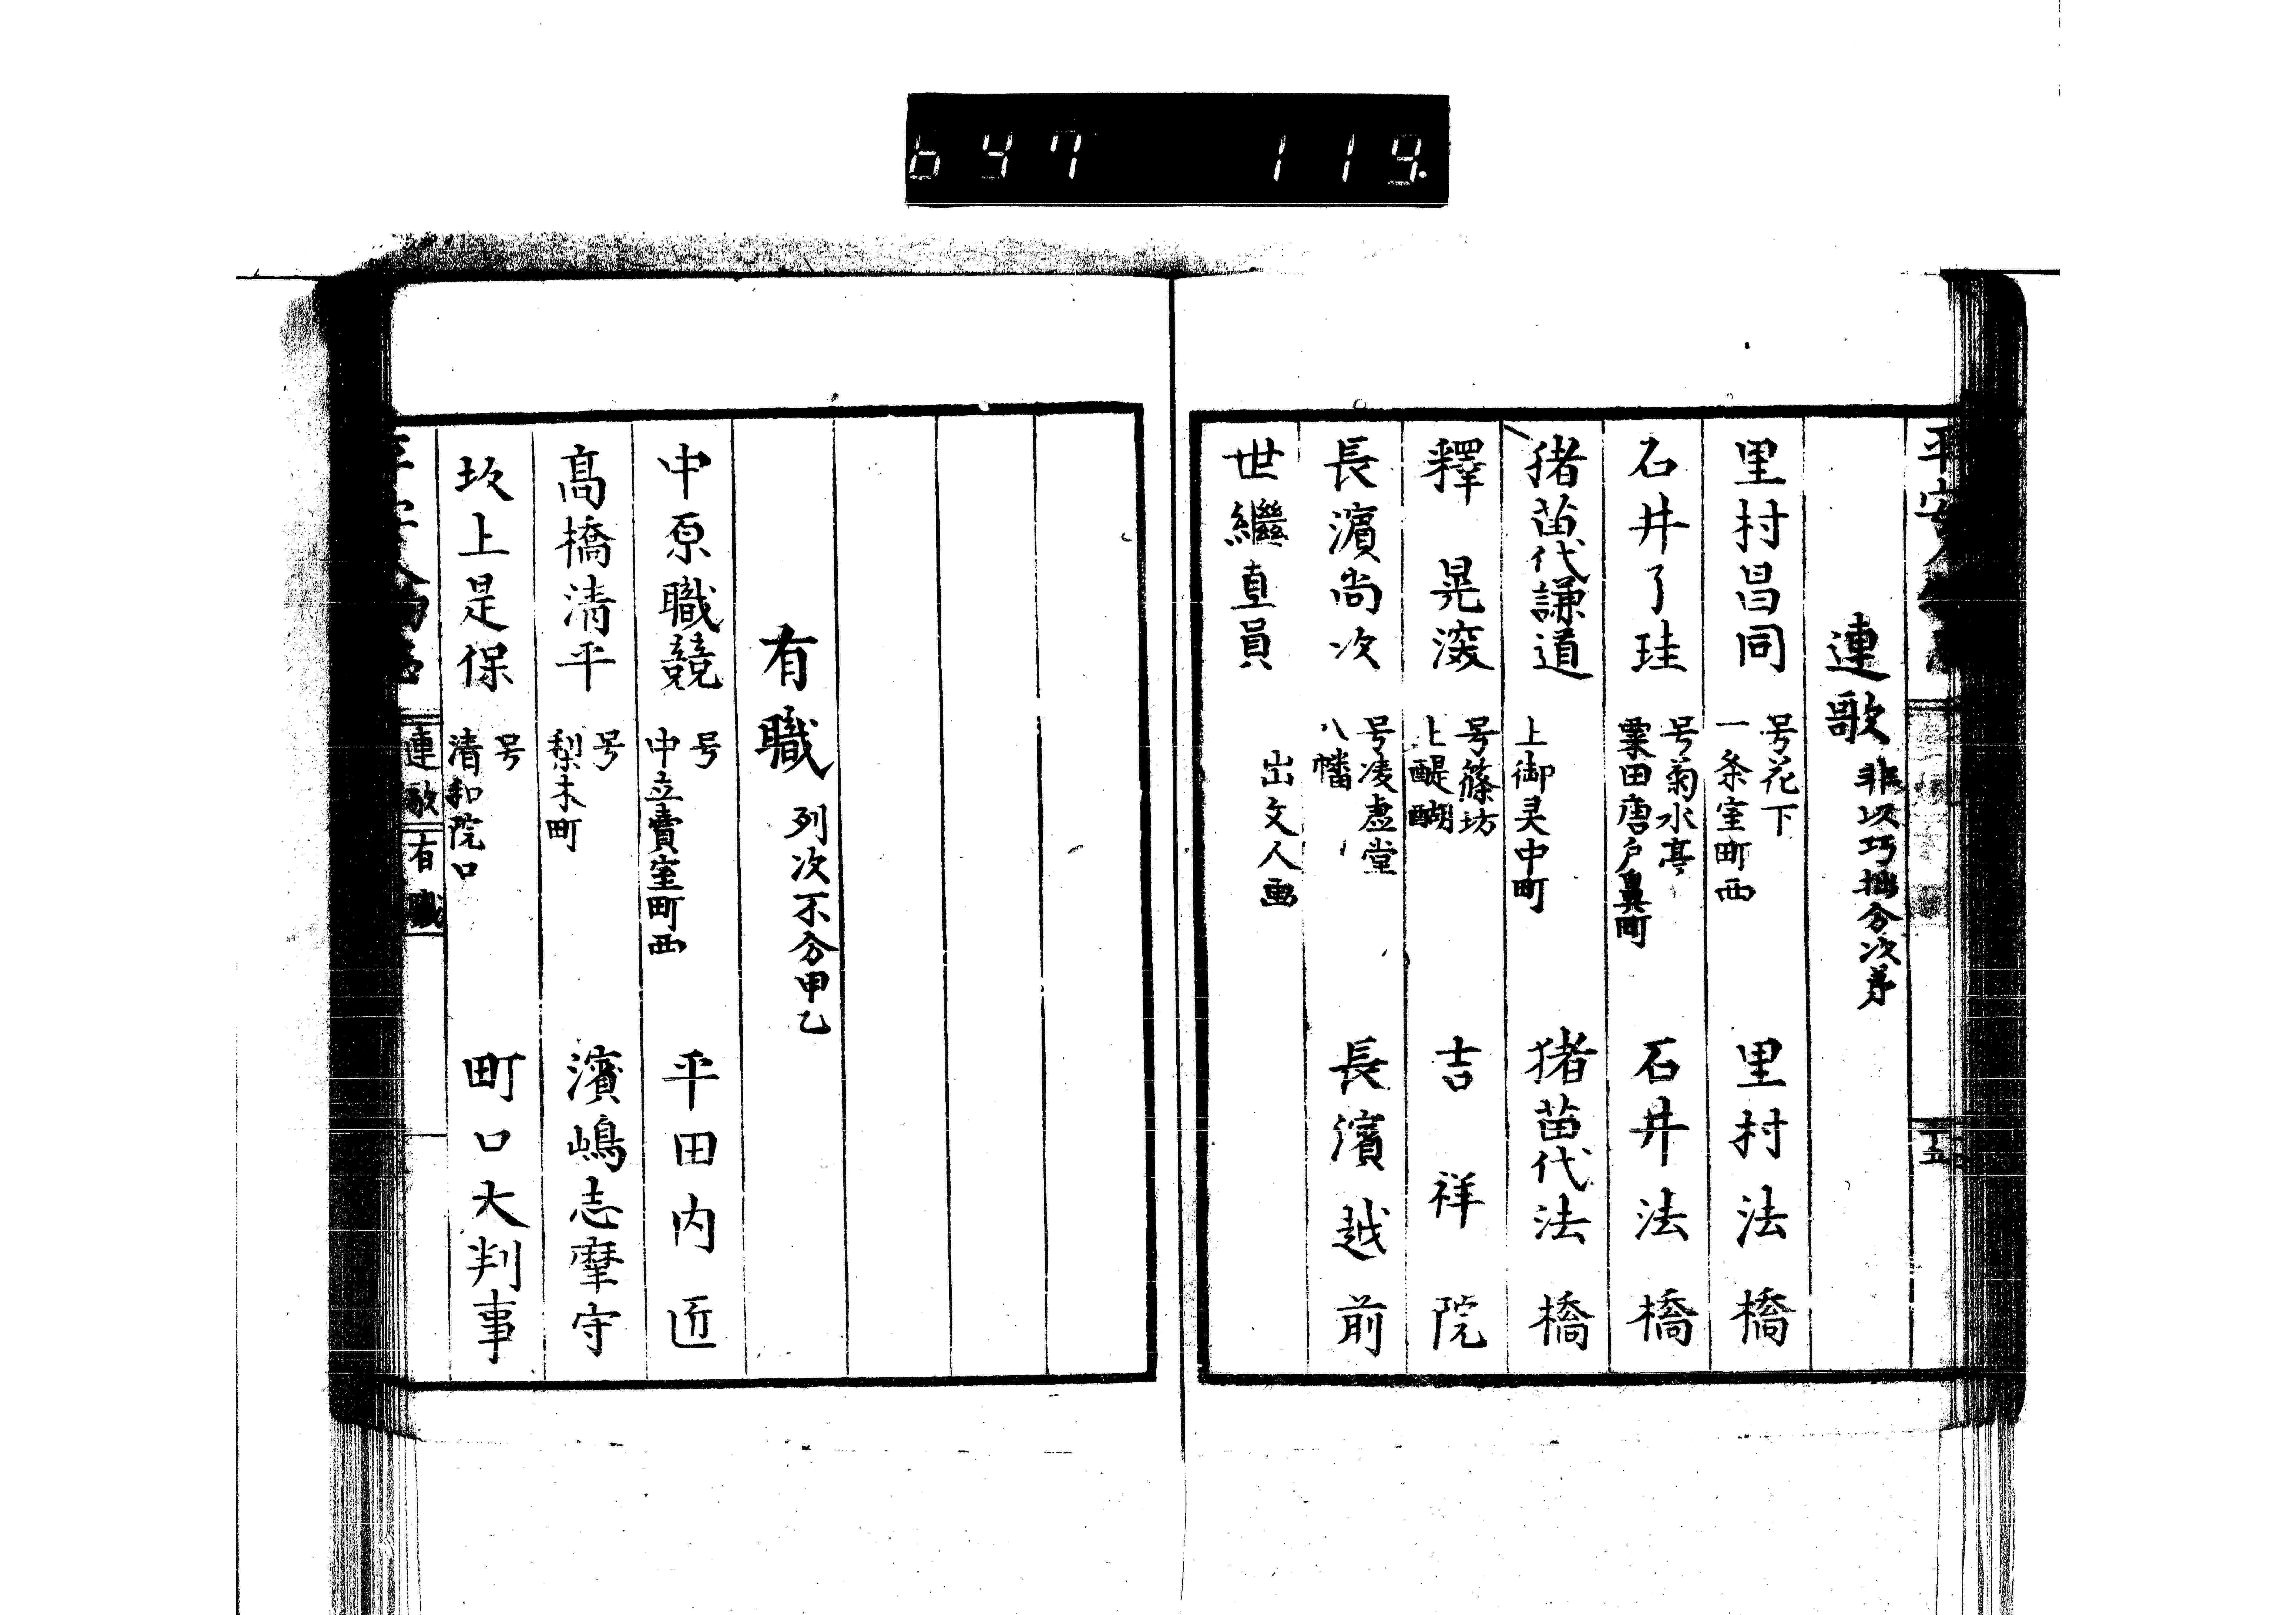 647 119.
連歌 非以巧拙分次第
里村昌同 号花下 一条室町西 里村法橋
石井了珪 号菊水亭 粟田唐戸鼻町 石井法橋
猪苗代謙道 上御灵中町 猪苗代法橋
釋晃滾 号篠坊 上醍醐 吉祥院
長濱尚次 号凌虚堂 八幡 長濱越前
世繼直員 出文人画
有職 列次不分甲乙
中原職競 号 中立賣室町西 平田内匠
髙橋清平 号 梨木町 濱嶋志摩守
坂上是保 号 清和院口 町口大判事
連歌 有職